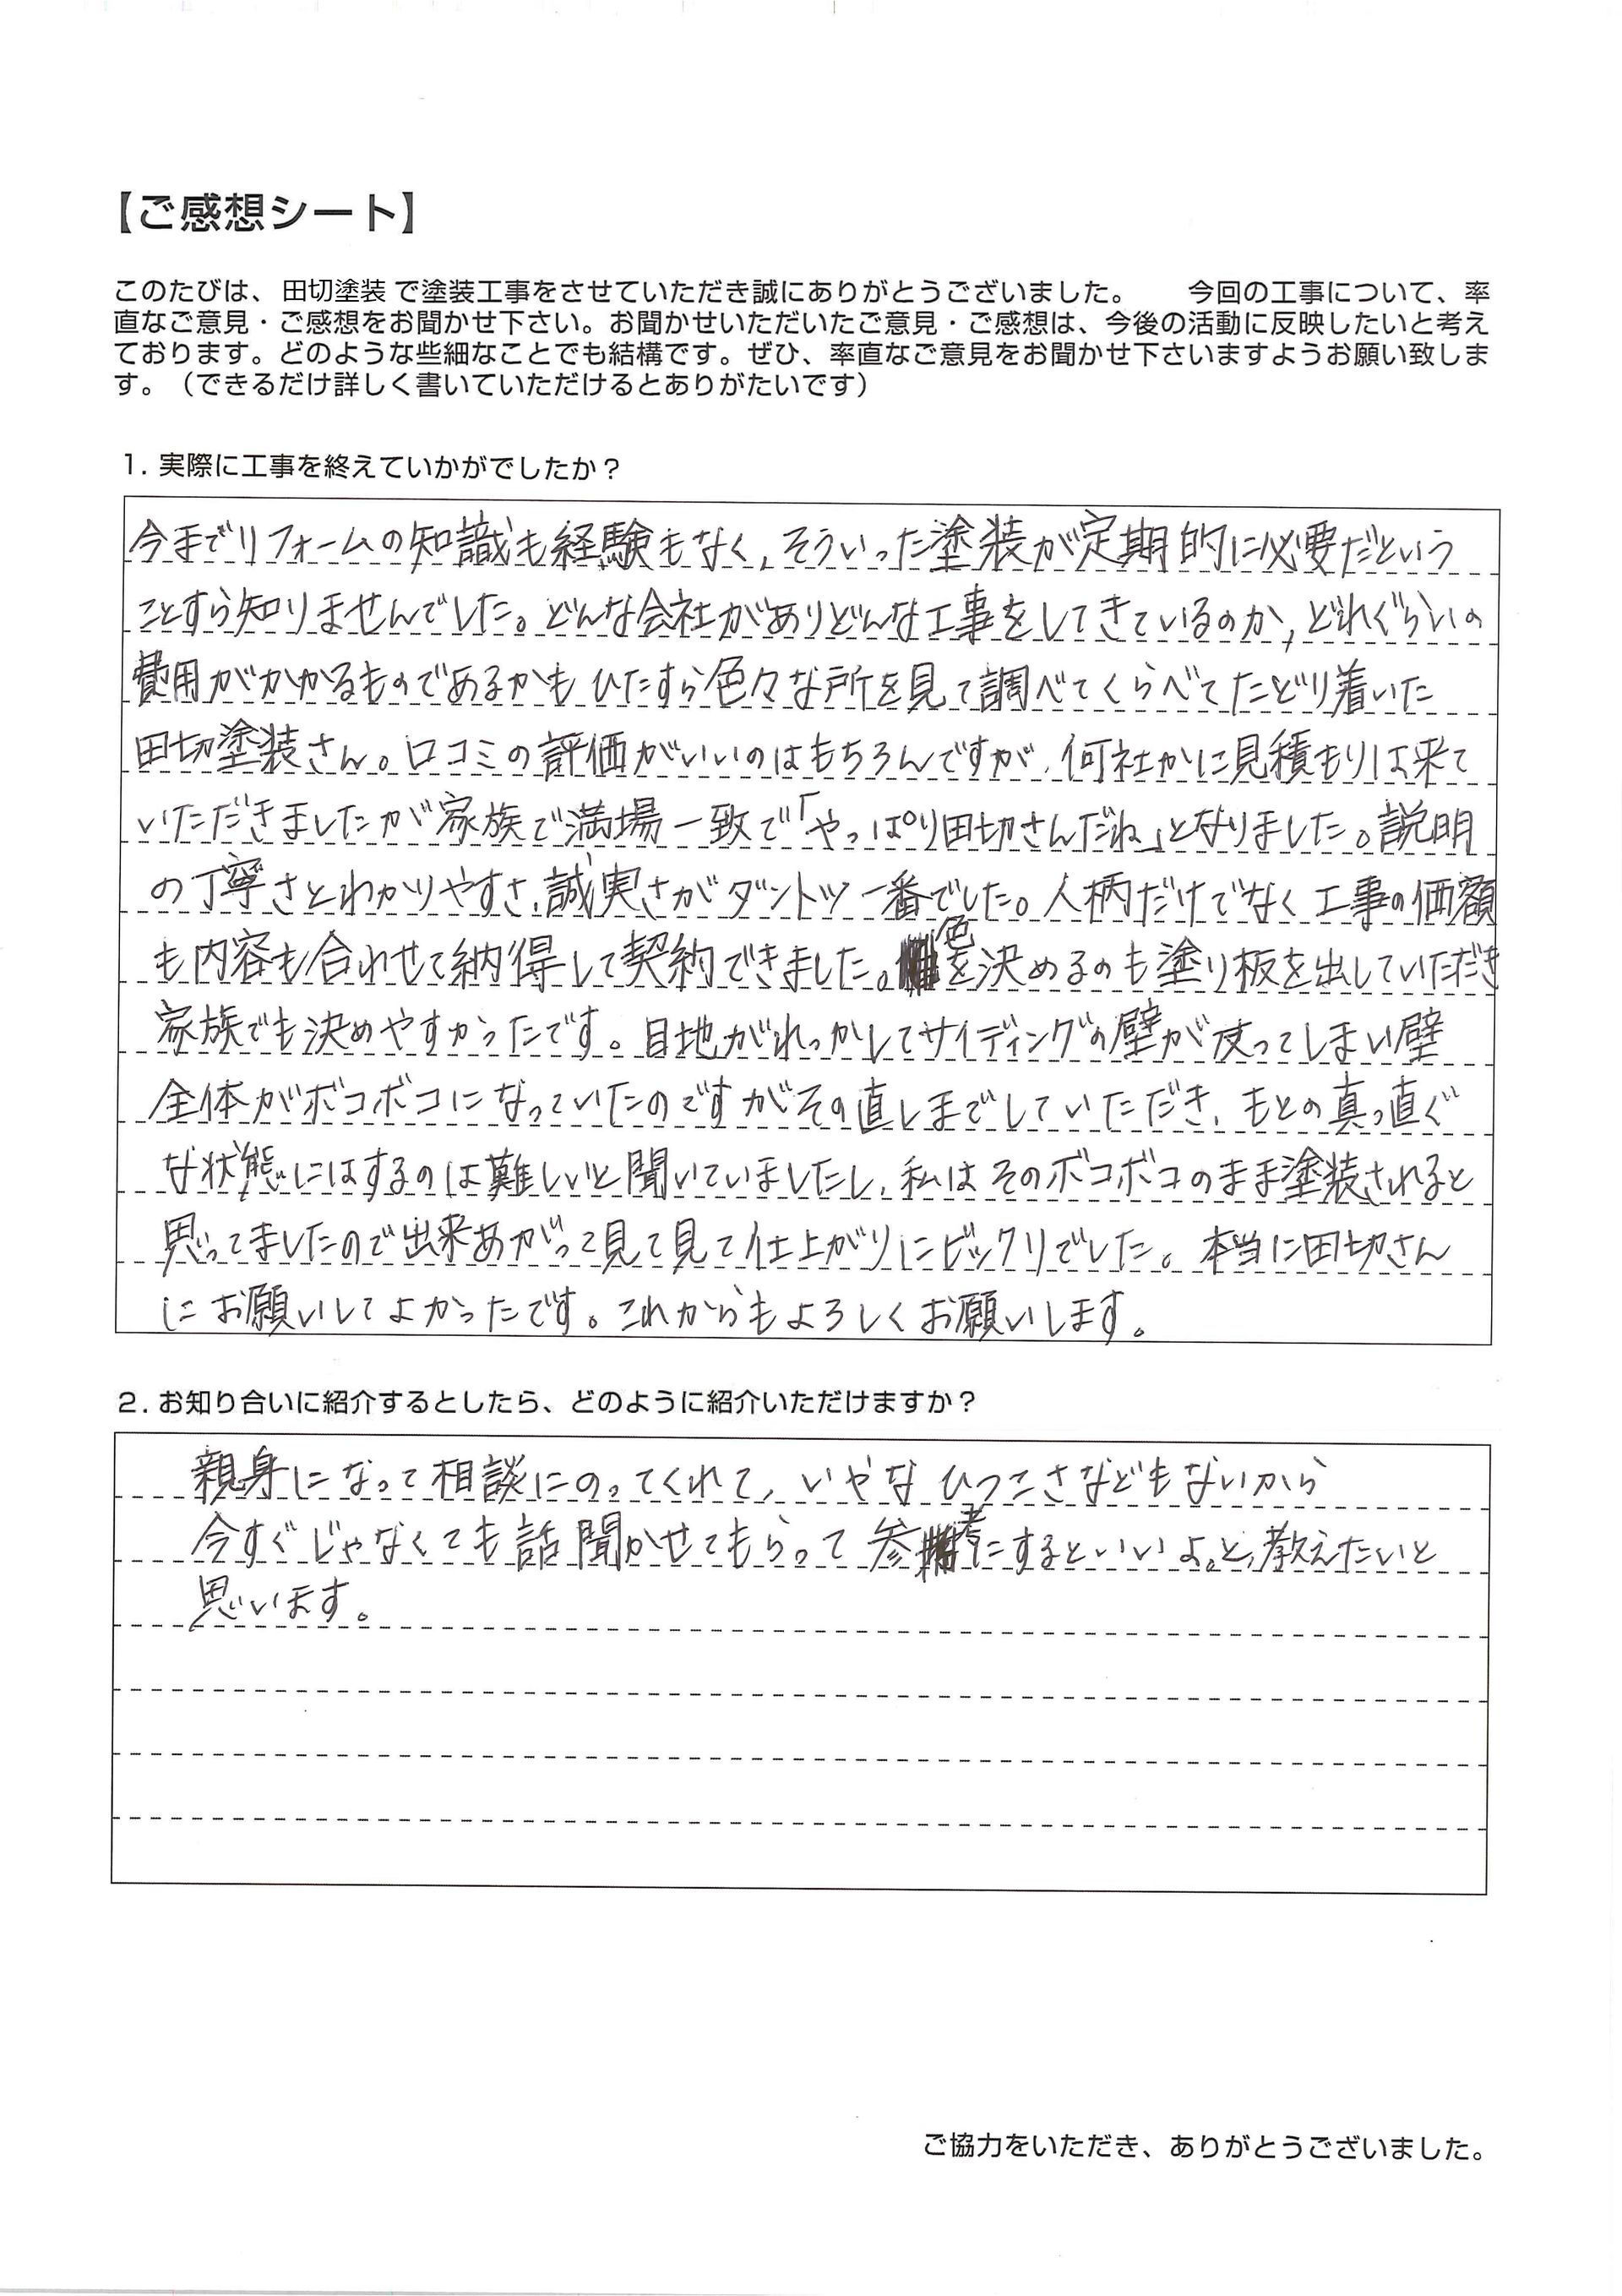 【ご感想シート】
このたびは、田切塗装で塗装工事をさせていただき誠にありがとうございました。　今回の工事について、率
直なご意見・ご感想をお聞かせ下さい。お聞かせいただいたご意見・ご感想は、今後の活動に反映したいと考え
ております。どのような些細なことでも結構です。ぜひ、率直なご意見をお聞かせ下さいますようお願い致しま
す。（できるだけ詳しく書いていただけるとありがたいです）
1. 実際に工事を終えていかがでしたか？
今までリフォームの知識も経験もなく、そういった塗装が定期的に必要だという
ことすら知りませんでした。どんな会社がありどんな工事をしてきているのか、どれぐらいの
費用がかかるものであるかもひたすら色々な所を見て調べてくらべてたどり着いた
田切塗装さん。口コミの評価がいいのはもちろんですが、何社かに見積もりは来て
いただきましたが家族で満場一致で「やっぱり田切さんだね」となりました。説明
の丁寧さとわかりやすさ、誠実さがダントツ一番でした。人柄だけでなく工事の価額
も内容も合わせて納得して契約できました。色を決めるのも塗り板を出していただき
家族でも決めやすかったです。目地がれっかしてサイディングの壁が反ってしまい壁
全体がボコボコになっていたのですがその直しまでしていただき、もとの真っ直ぐ
な状態にはするのは難しいと聞いていましたし、私はそのボコボコのまま塗装されると
思ってましたので出来あがって見て見て仕上がりにビックリでした。本当に田切さん
にお願いしてよかったです。これからもよろしくお願いします。
2. お知り合いに紹介するとしたら、どのように紹介いただけますか？
親身になって相談にのってくれて、いやなひつこさなどもないから
今すぐじゃなくても話聞かせてもらって参考にするといいよ。と、教えたいと
思います。
ご協力をいただき、ありがとうございました。